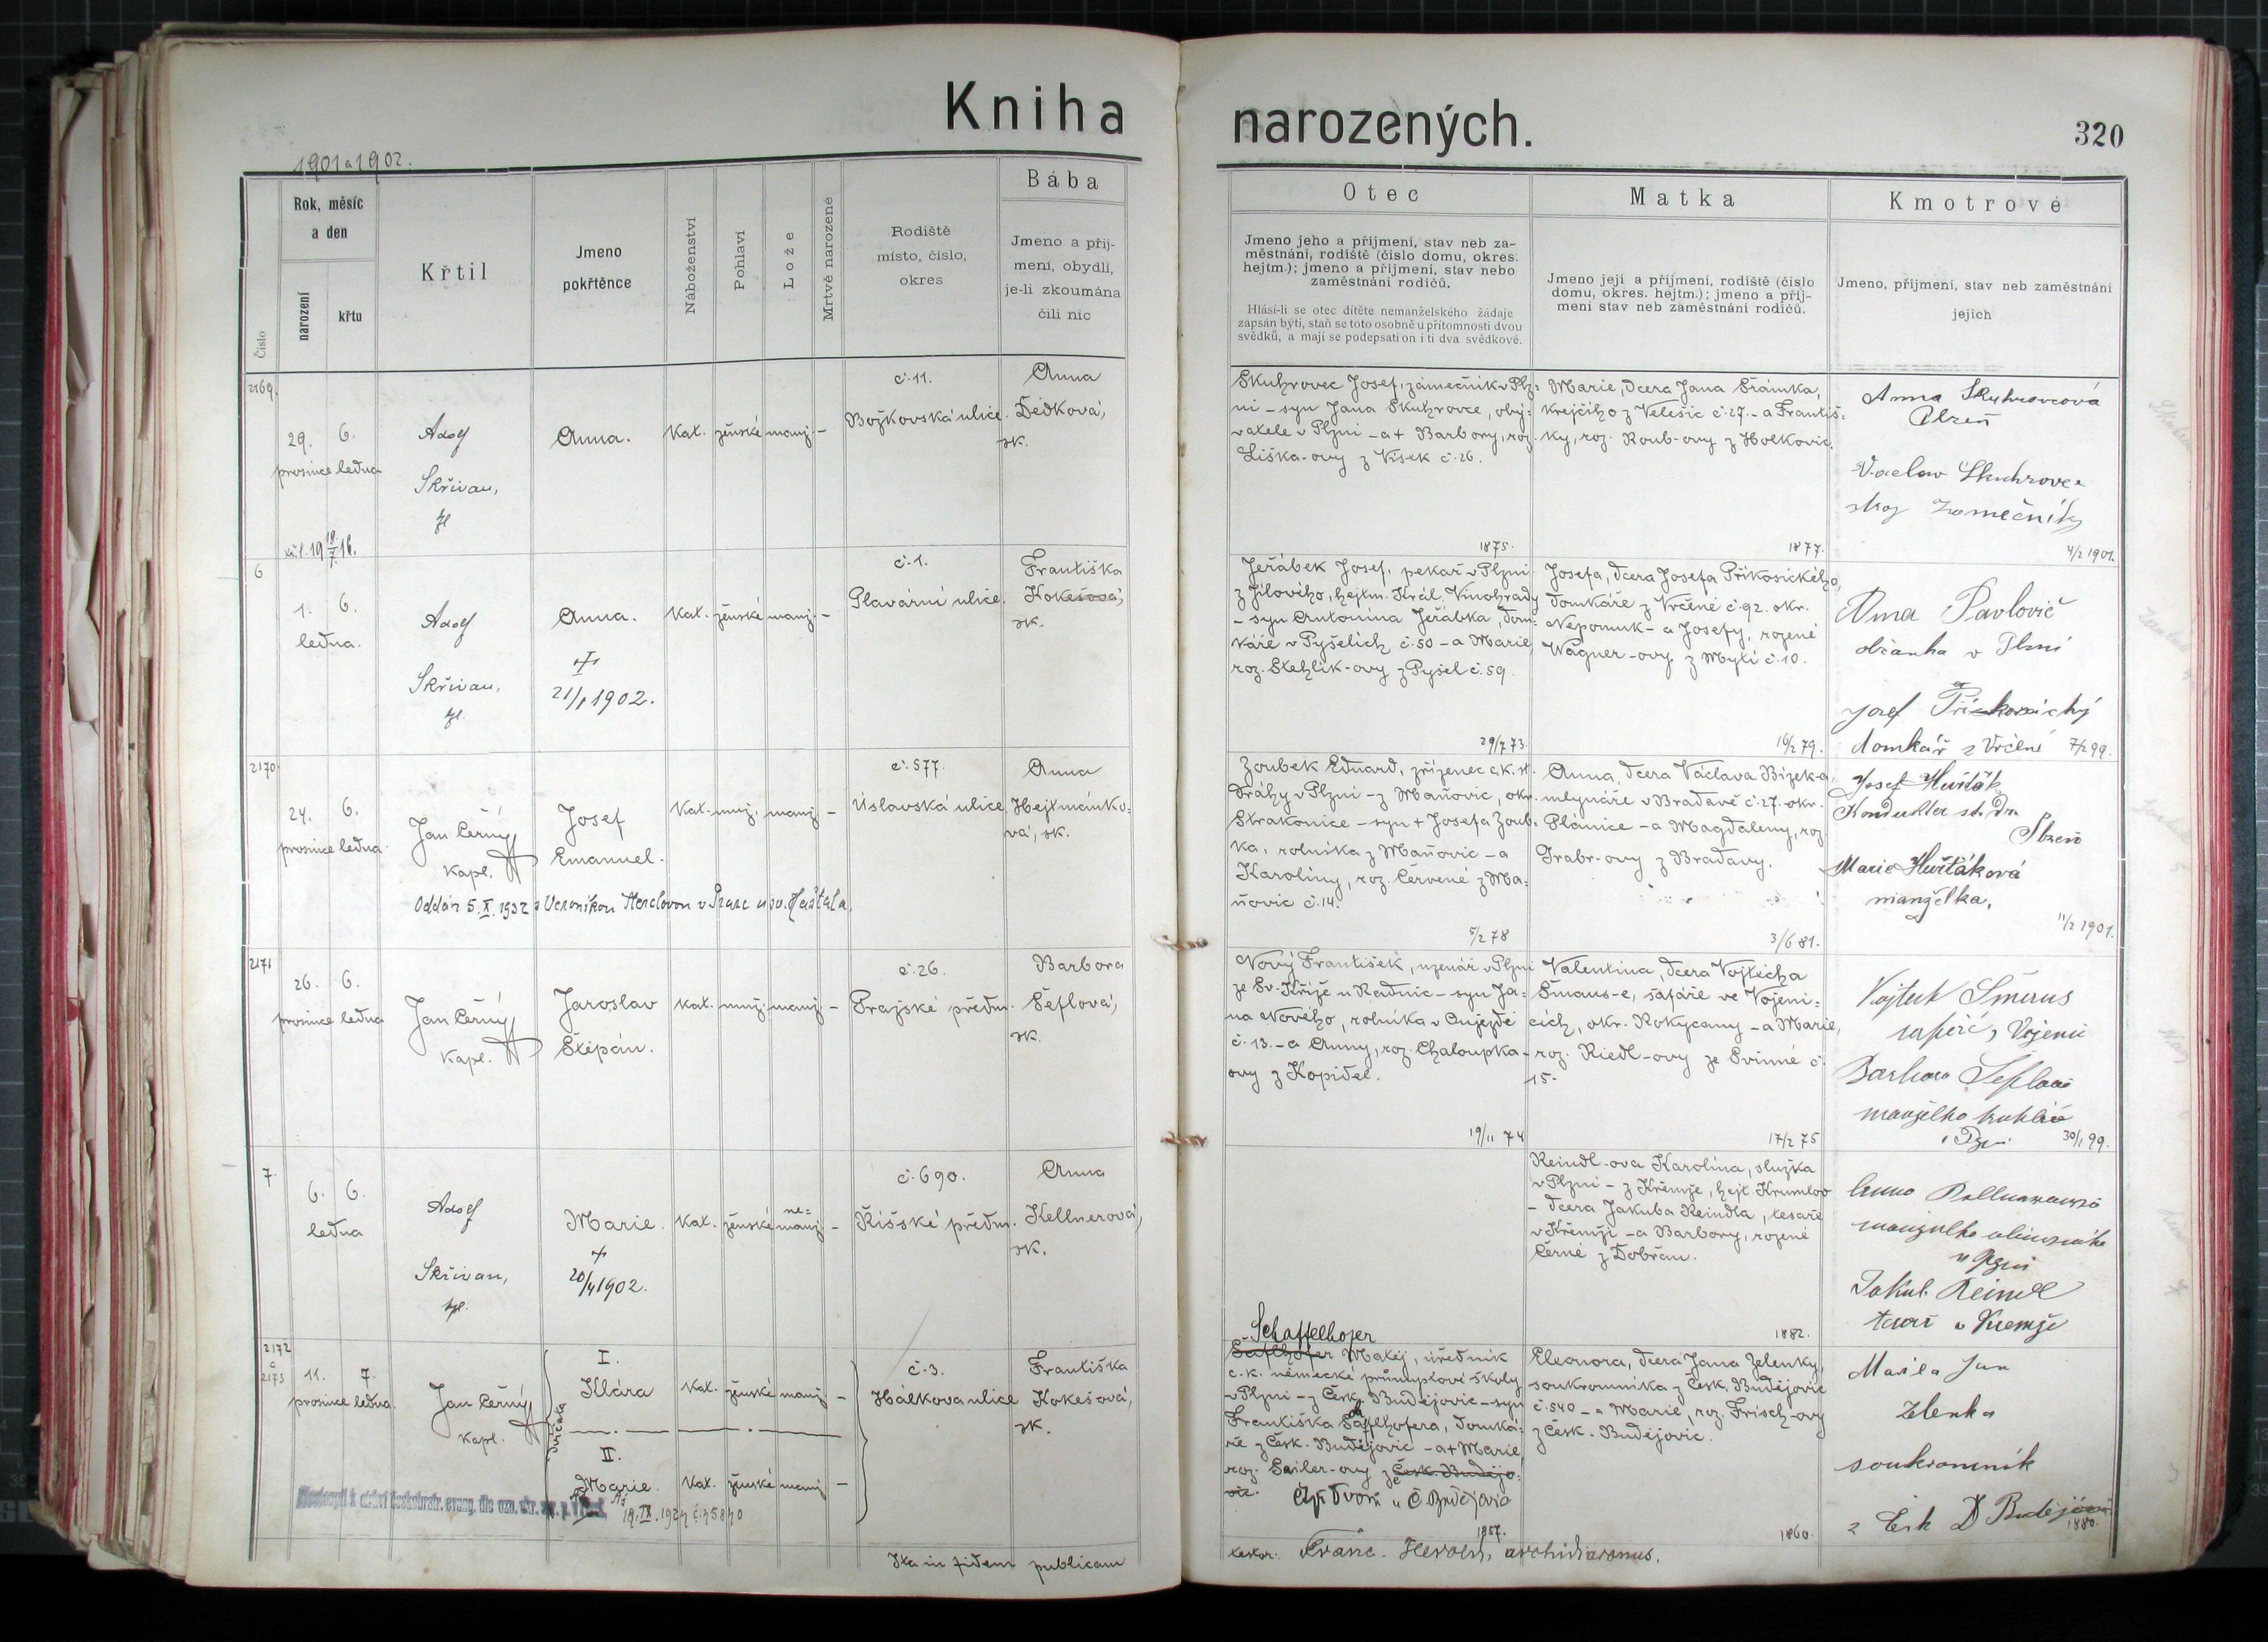 Kniha
1901 a 1902.
Číslo
Rok, měsíc
a den
narození
křtu
Křtil
Jmeno
pokřtěnce
Náboženství
Pohlaví
Lože
Mrtvě narozené
Rodiště
místo, číslo,
okres
Bába
Jmeno a přij-
mení, obydlí,
je-li zkoumána
čili nic
2169.
29. 6.
prosince ledna
Adolf
Skřivan,
Anna.
Kat. ženské manž. -
č. 11.
Božkovská ulice.
Anna
Dědková,
zk.
6
1. 6.
ledna.
Adolf
Skřivan,
Anna.
†
21/1 1902.
Kat. ženské manž. -
č. 1.
Plavární ulice.
Františka
Kokešová,
zk.
2170
24. 6.
prosince ledna
Jan Černý
kapl.
Josef
Emanuel.
Kat. muž. manž. -
č. 577.
Úslavská ulice
Anna
Hejtmánko-
vá, zk.
Oddán 5.X.1932 s Veronikou Henclovou v Praze u sv. Haštala.
2171
26. 6.
prosince ledna
Jan Černý
kapl.
Jaroslav
Štěpán.
Kat. muž. manž. -
č. 26.
Pražské předm.
Barbora
Šeflová,
zk.
7.
6. 6.
ledna
Adolf
Skřivan,
Marie.
†
20/4 1902.
Kat. ženské ne=
manž. -
č. 690.
Říšské předm.
Anna
Kellnerová,
zk.
2172
a
2173
11. 7.
prosince ledna.
Jan Černý
kapl.
dvojčata
I.
Klára
Kat. ženské manž. -
II.
Marie.
Kat. ženské manž. -
č. 3.
Hálkova ulice
Františka
Kokešová,
zk.
Ita in fidem publicam
narozených.
320
Otec
Jmeno jeho a příjmení, stav neb za-
městnání, rodiště (číslo domu, okres.
hejtm.); jmeno a příjmení, stav nebo
zaměstnání rodičů.
Hlásí-li se otec dítěte nemanželského žádaje
zapsán býti, staň se toto osobně u přítomnosti dvou
svědků, a mají se podepsati on i ti dva svědkové.
Matka
Jmeno její a příjmení, rodiště (číslo
domu, okres. hejtm.); jmeno a příj-
mení stav neb zaměstnání rodičů.
Kmotrové
Jmeno, příjmení, stav neb zaměstnání
jejich
Skuhrovec Josef, zámečník v Plz=
ni - syn Jana Skuhrovce, oby=
vatele v Plzni - a † Barbory, roz.
Liška-ovy z Vísek č. 26.
1875.
Marie, dcera Jana Šrámka,
krejčího z Velešic č. 27. - a Františ=
ky, roz. Roub-ovy z Holkovic.
1877.
Anna Skuhrovcová
Plzeň
Vaclav Skuhrovec
stroj zamečník
4/2 1901.
Jeřábek Josef, pekař v Plzni
z Jílového, hejtm. Král. Vinohrady
- syn Antonína Jeřábka, dom=
káře v Pyšelích č. 50 - a Marie,
roz. Stehlík-ovy z Pyšel č. 59.
29/7 73.
Josefa, dcera Josefa Příkosického,
domkáře z Vrčené č. 92. okr.
Nepomuk - a Josefy, rozené
Wagner-ovy z Mýti č. 10.
16/2 79.
Anna Pavlovič
občanka v Plzni
Josef
domkář z Vrčené 7/2 99.
Zoubek Eduard, zřízenec c.k. st.
dráhy v Plzni - z Maňovic, okr.
Strakonice - syn † Josefa Zoub=
ka, rolníka z Maňovic - a
Karoliny, roz. Červené z Ma=
ňovic č. 14.
5/2 78
Anna, dcera Václava Bízek-a,
mlynáře v Bradavě č. 27. okr.
Plánice - a Magdaleny, roz.
Grabr-ovy z Bradavy.
3/6 81.
Josef Huřťák
Kondukter st. dr.
Plzeň
Marie Huřťáková
manželka,
11/2 1901.
Nový František, uzenář v Plzni
ze Sv. Kříže u Radnic - syn Ja=
na Nového, rolníka v Oujezdě
č. 13. - a Anny, roz. Chaloupka-
ovy z Kopidel.
19/11 74
Valentina, dcera Vojtěcha
Šmaus-e, šafáře ve Vojeni=
cích, okr. Rokycany - a Marie,
roz. Riedl-ovy ze Svinné č.
15.
17/2 75
Barbora Šeflová
manželka
30/1 99.
Reindl-ova Karolina, služka
v Plzni - z Křemže, hejt. Krumlov
- dcera Jakuba Reindla, tesaře
v Křemži - a Barbory, rozené
Černé z Dobřan.
1882.
Jakub Reindl
tesař v Kremže
Schaffelhofer
Matěj, úředník
c.k. německé průmyslové školy
v Plzni - z Česk. Budějovic - syn
Františka Šafflhofera, domká=
ře z Česk. Budějovic - a † Marie,
roz. Seiler-ovy z Česk. Budějo=
vic.
1857.
Eleonora, dcera Jana Zelenky,
soukromníka z Česk. Budějovic
č. 540 - a Marie, roz. Frisch-ovy
z Česk. Budějovic.
1860.
Jan
Zelenka
soukromník
z Česk Budějovic
1880.
Franc. Herold, archidiaconus.